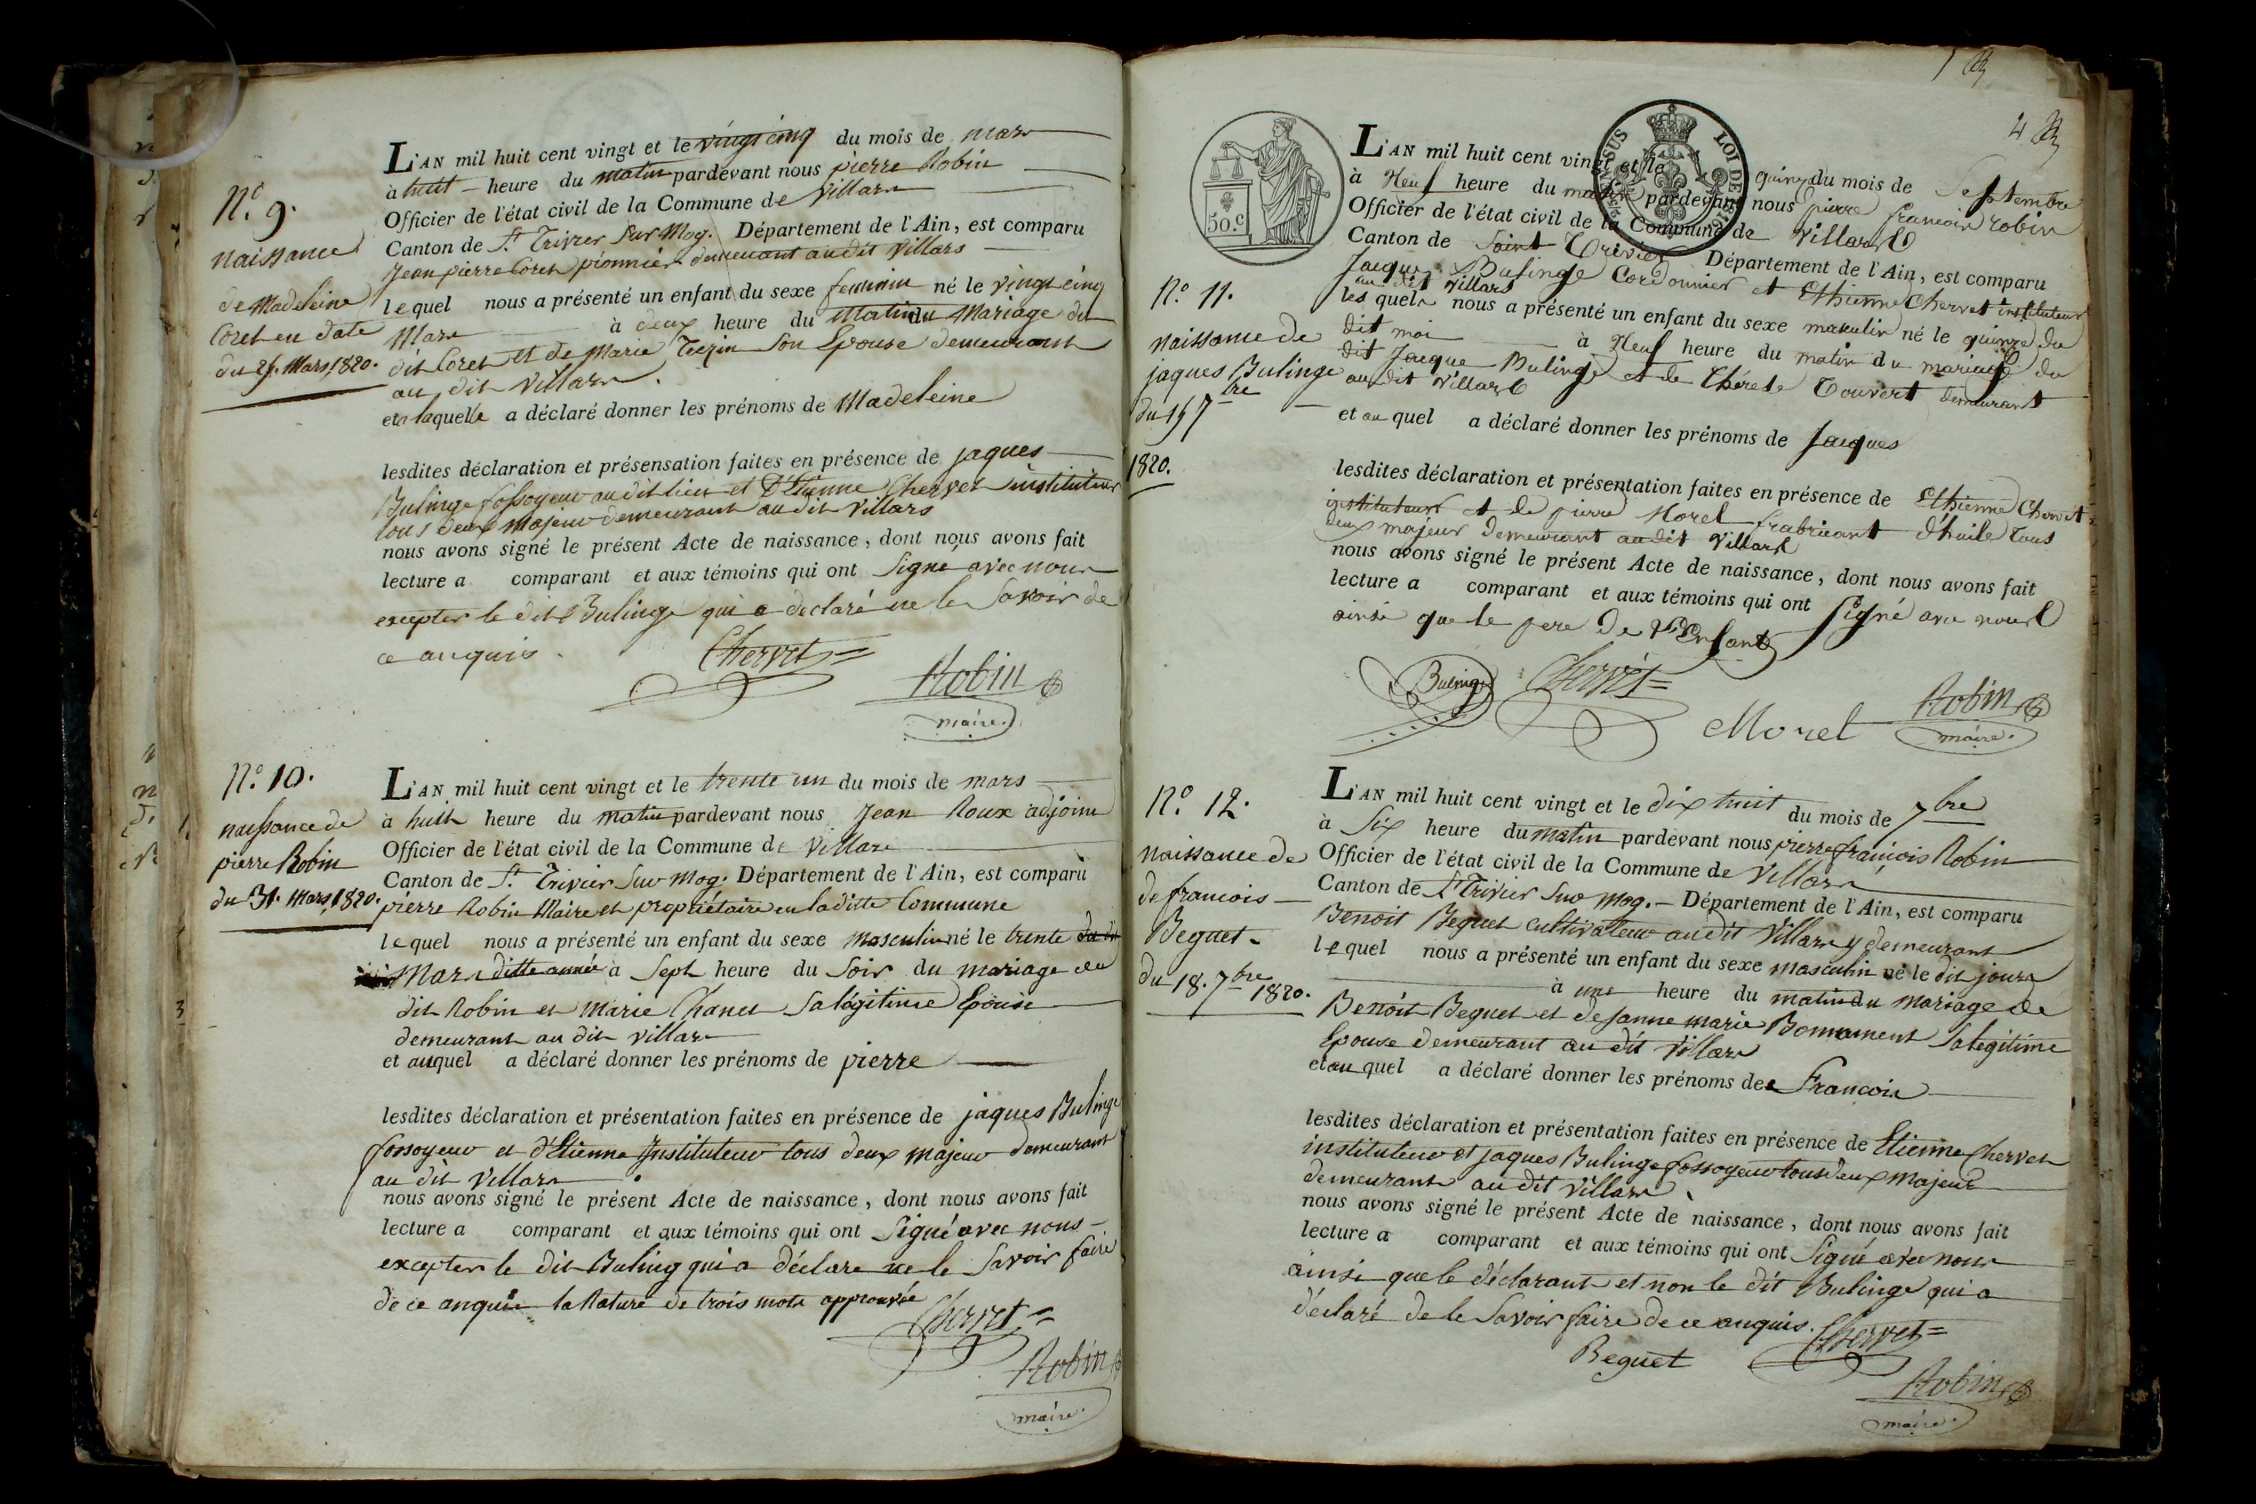 N.º 9.
naissance
de Madeleine
Coret en date
du 25. Mars 1820.
L'AN mil huit cent vingt et le vingt cinq du mois de mars
à huit heure du matin pardevant nous pierre Robin
Officier de l'état civil de la Commune de Villars
Canton de St. Trivier Sur Mog. Département de l'Ain, est comparu
Jean pierre Coret pionnier demeurant au dit Villars
lequel nous a présenté un enfant du sexe feminin né le vingt cinq
Mars à deux heure du Matin du Mariage du
dit Coret et de Marie son Epouse demeurant
au dit Villars.
et a laquelle a déclaré donner les prénoms de Madeleine
lesdites déclaration et présensation faites en présence de jaques
Bulinge fossoyeur au dit lieu et d'Etienne Chervet instituteur
tous deux majeur demeurant au dit Villars
nous avons signé le présent Acte de naissance, dont nous avons fait
lecture a comparant et aux témoins qui ont Signé avec nous
excepter le dit Bulinge qui a declaré ne le Savoir de
ce anquis.
Chervet
Robin
maire.
N.º 10.
naissance de
pierre Robin
du 31. Mars 1820.
L'AN mil huit cent vingt et le trente un du mois de mars
à huit heure du matin pardevant nous Jean Roux adjoint
Officier de l'état civil de la Commune de Villars
Canton de St. Trivier Sur Mog. Département de l'Ain, est comparu
pierre Robin Maire et propriétaire en la ditte Commune
lequel nous a présenté un enfant du sexe masculin né le trente du dit
Mars ditte année à Sept heure du Soir du mariage du
dit Robin et Marie Chanel Sa légitime Epouse
demeurant au dit villars
et auquel a déclaré donner les prénoms de pierre
lesdites déclaration et présentation faites en présence de jaques Bulinge
fossoyeur et d'Etienne Instituteur tous deux majeur demeurant
au dit Villars
nous avons signé le présent Acte de naissance, dont nous avons fait
lecture a comparant et aux témoins qui ont Signé avec nous
excepter le dit Buling qui a déclare ne le Savoir faire
de ce anquis la Rature de trois mots approuvée
Chervet
Robin
maire.
4
TIMBRE
50.c
SUS LOI DE 1816
N.º 11.
naissance de
jaques Bulinge
du 15 7bre
1820.
L'AN mil huit cent vingt et le quinze du mois de Septembre
à Neuf heure du matin pardevant nous pierre francois robin
Officier de l'état civil de la Commune de Villars
Canton de Saint Trivier Département de l'Ain, est comparu
Jacques Bulinge Cordonnier et Ethienne Chervet instituteur
au dit Villars
les quels nous a présenté un enfant du sexe maskulin né le quinze du
dit moi à Neuf heure du matin du mariage du
dit Jacque Bulinge et de Thérese Touvert demeurant
au dit Villars
et au quel a déclaré donner les prénoms de Jacques
lesdites déclaration et présentation faites en présence de Ethienne Chervet
instituteur et de pierre Morel frabricant d'huile Tous
deux majeur demeurant au dit Villars
nous avons signé le présent Acte de naissance, dont nous avons fait
lecture a comparant et aux témoins qui ont Signé avec nous
ainsi que le pere de l'Enfant
Buling
Chervet
Morel
Robin
maire.
N.º 12.
naissance de
de francois
Beguet
du 18. 7bre 1820.
L'AN mil huit cent vingt et le dix huit du mois de 7bre
à Six heure du matin pardevant nous pierre françois Robin
Officier de l'état civil de la Commune de Villars
Canton de St Trivier Sur Mog. Département de l'Ain, est comparu
Benoit Beguet Cultivateur au dit Villars y demeurant
lequel nous a présenté un enfant du sexe masculin né le dit jours
à une heure du matin du mariage de
Benoit Beguet et de Janne marie Sa legitime
Epouse demeurant au dit Villars
et au quel a déclaré donner les prénoms de Francois
lesdites déclaration et présentation faites en présence de Etienne Chervet
instituteur et jaques Bulinge fossoyeur tous deux majeur
demeurant au dit Villars
nous avons signé le présent Acte de naissance, dont nous avons fait
lecture a comparant et aux témoins qui ont Signé avec nous
ainsi que le déclarant et non le dit Bulinge qui a
déclaré de le Savoir faire de ce anquis.
Beguet
Chervet
Robin
maire.